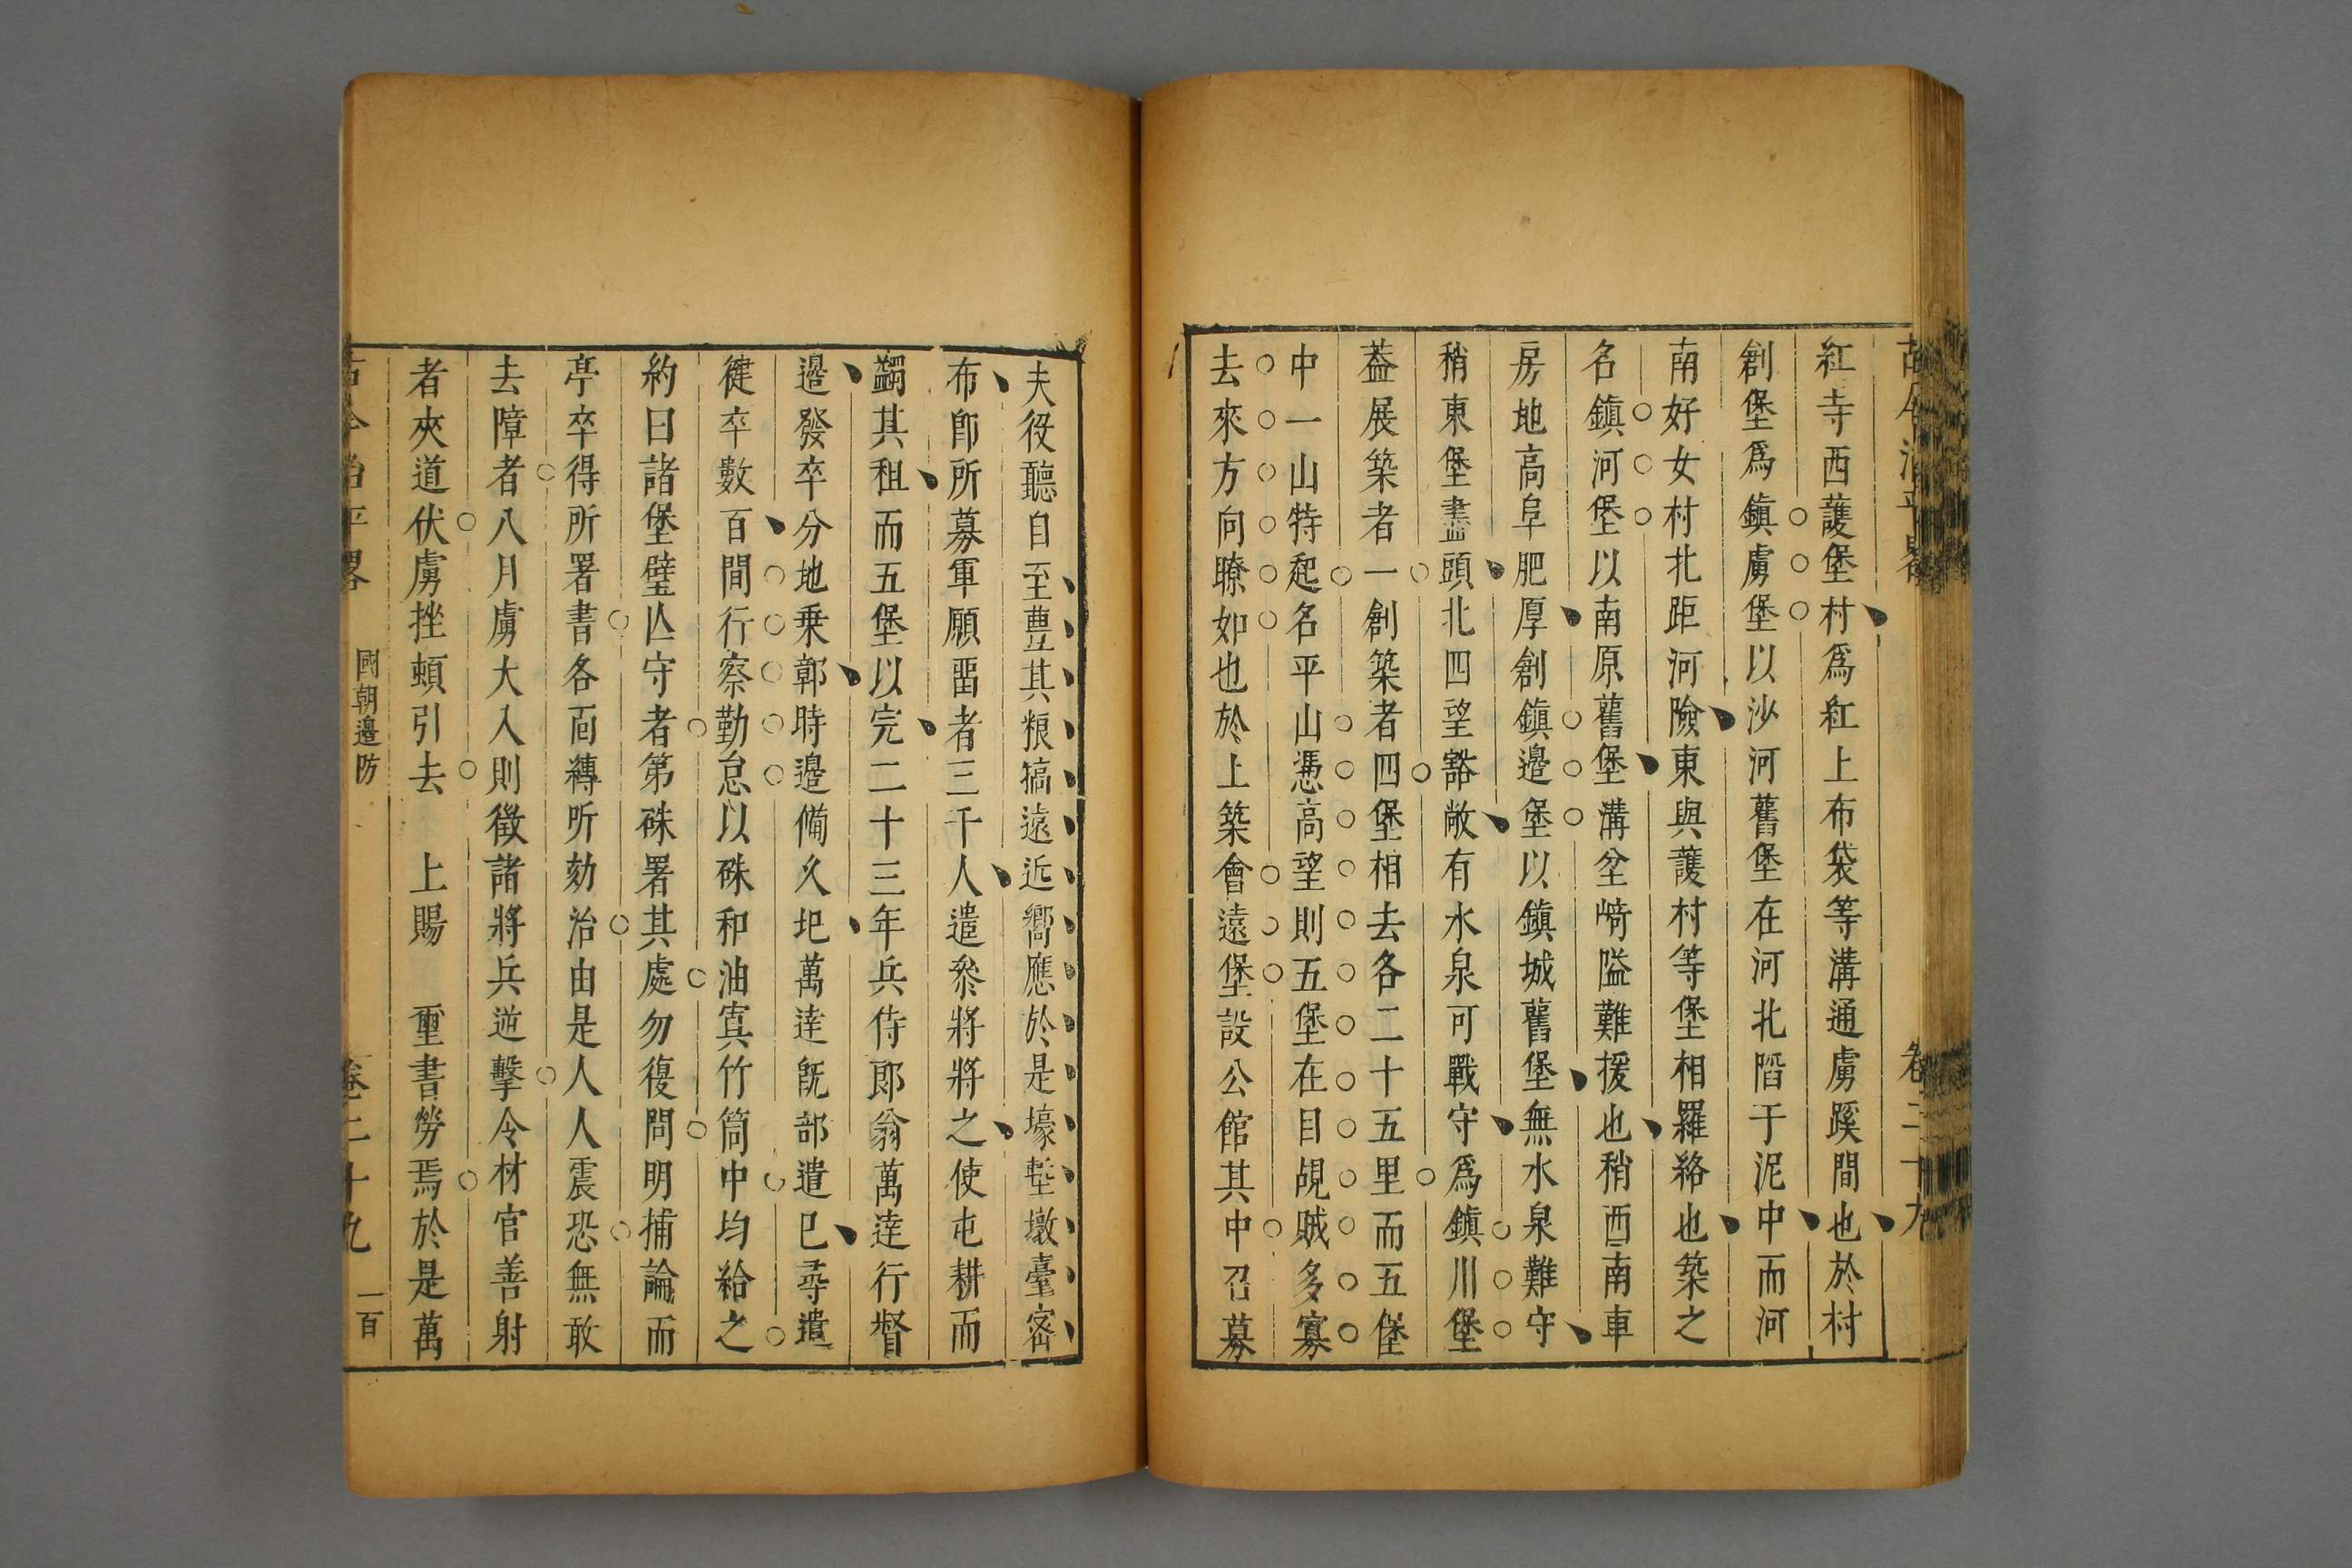 紅寺西護堡村爲紅上布袋等溝通虜蹊間也於村
創堡爲鎭虜堡以沙河舊堡在河北陷于泥中而河
南好女村北距河險東與護村等堡相羅絡也築之
名鎭河堡以南原舊堡溝坌崎隘難援也稍西南車
房地高阜肥厚創鎭邊堡以鎭城舊堡無水泉難守
稍東堡盡頭北四望豁敞有水泉可戰守爲鎭川堡
葢展築者一創築者四堡相去各二十五里而五堡
中一山特起名平山憑高望則五堡在目覘賊多寡
去來方向瞭如也於上築會遠堡設公館其中召募
夫役聽自至豊其粮犒遠近嚮應於是壕塹墩臺密
布卽所募軍願畱者三千人遣叅將將之使屯耕而
蠲其租而五堡以完二十三年兵侍郞翁萬達行督
邊發卒分地乗鄣時邊備久圮萬達旣部遣巳尋遣
徤卒數百間行察勤怠以硃和油寘竹筒中均給之
約曰諸堡壁亾守者第硃署其處勿復問明捕論而
亭卒得所署書各面縛所劾治由是人人震恐無敢
去障者八月虜大入則徵諸將兵逆擊令材官善射
者夾道伏虜挫頓引去　上賜　璽書勞焉於是萬
古今治平畧　國朝邊防　卷二十九　一百